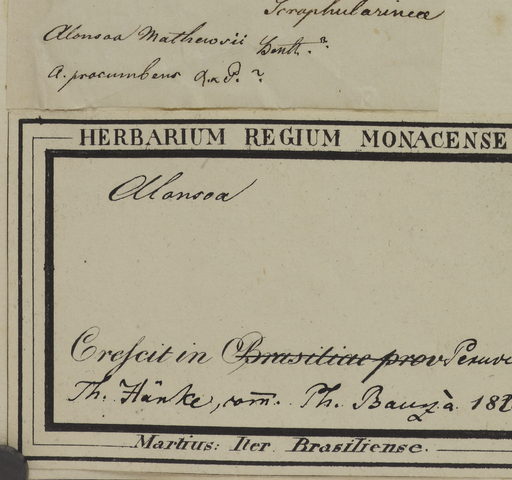 Scrophularineæ
Alonsoa Mathewsii Benth.?
A. procumbens R. & P.?
HERBARIUM REGIUM MONACENSE
Alonsoa
Crescit in Brasiliae prov Peruv
Th. Hänke, com. Ph. Bauzà 18
Martius: Iter Brasiliense.